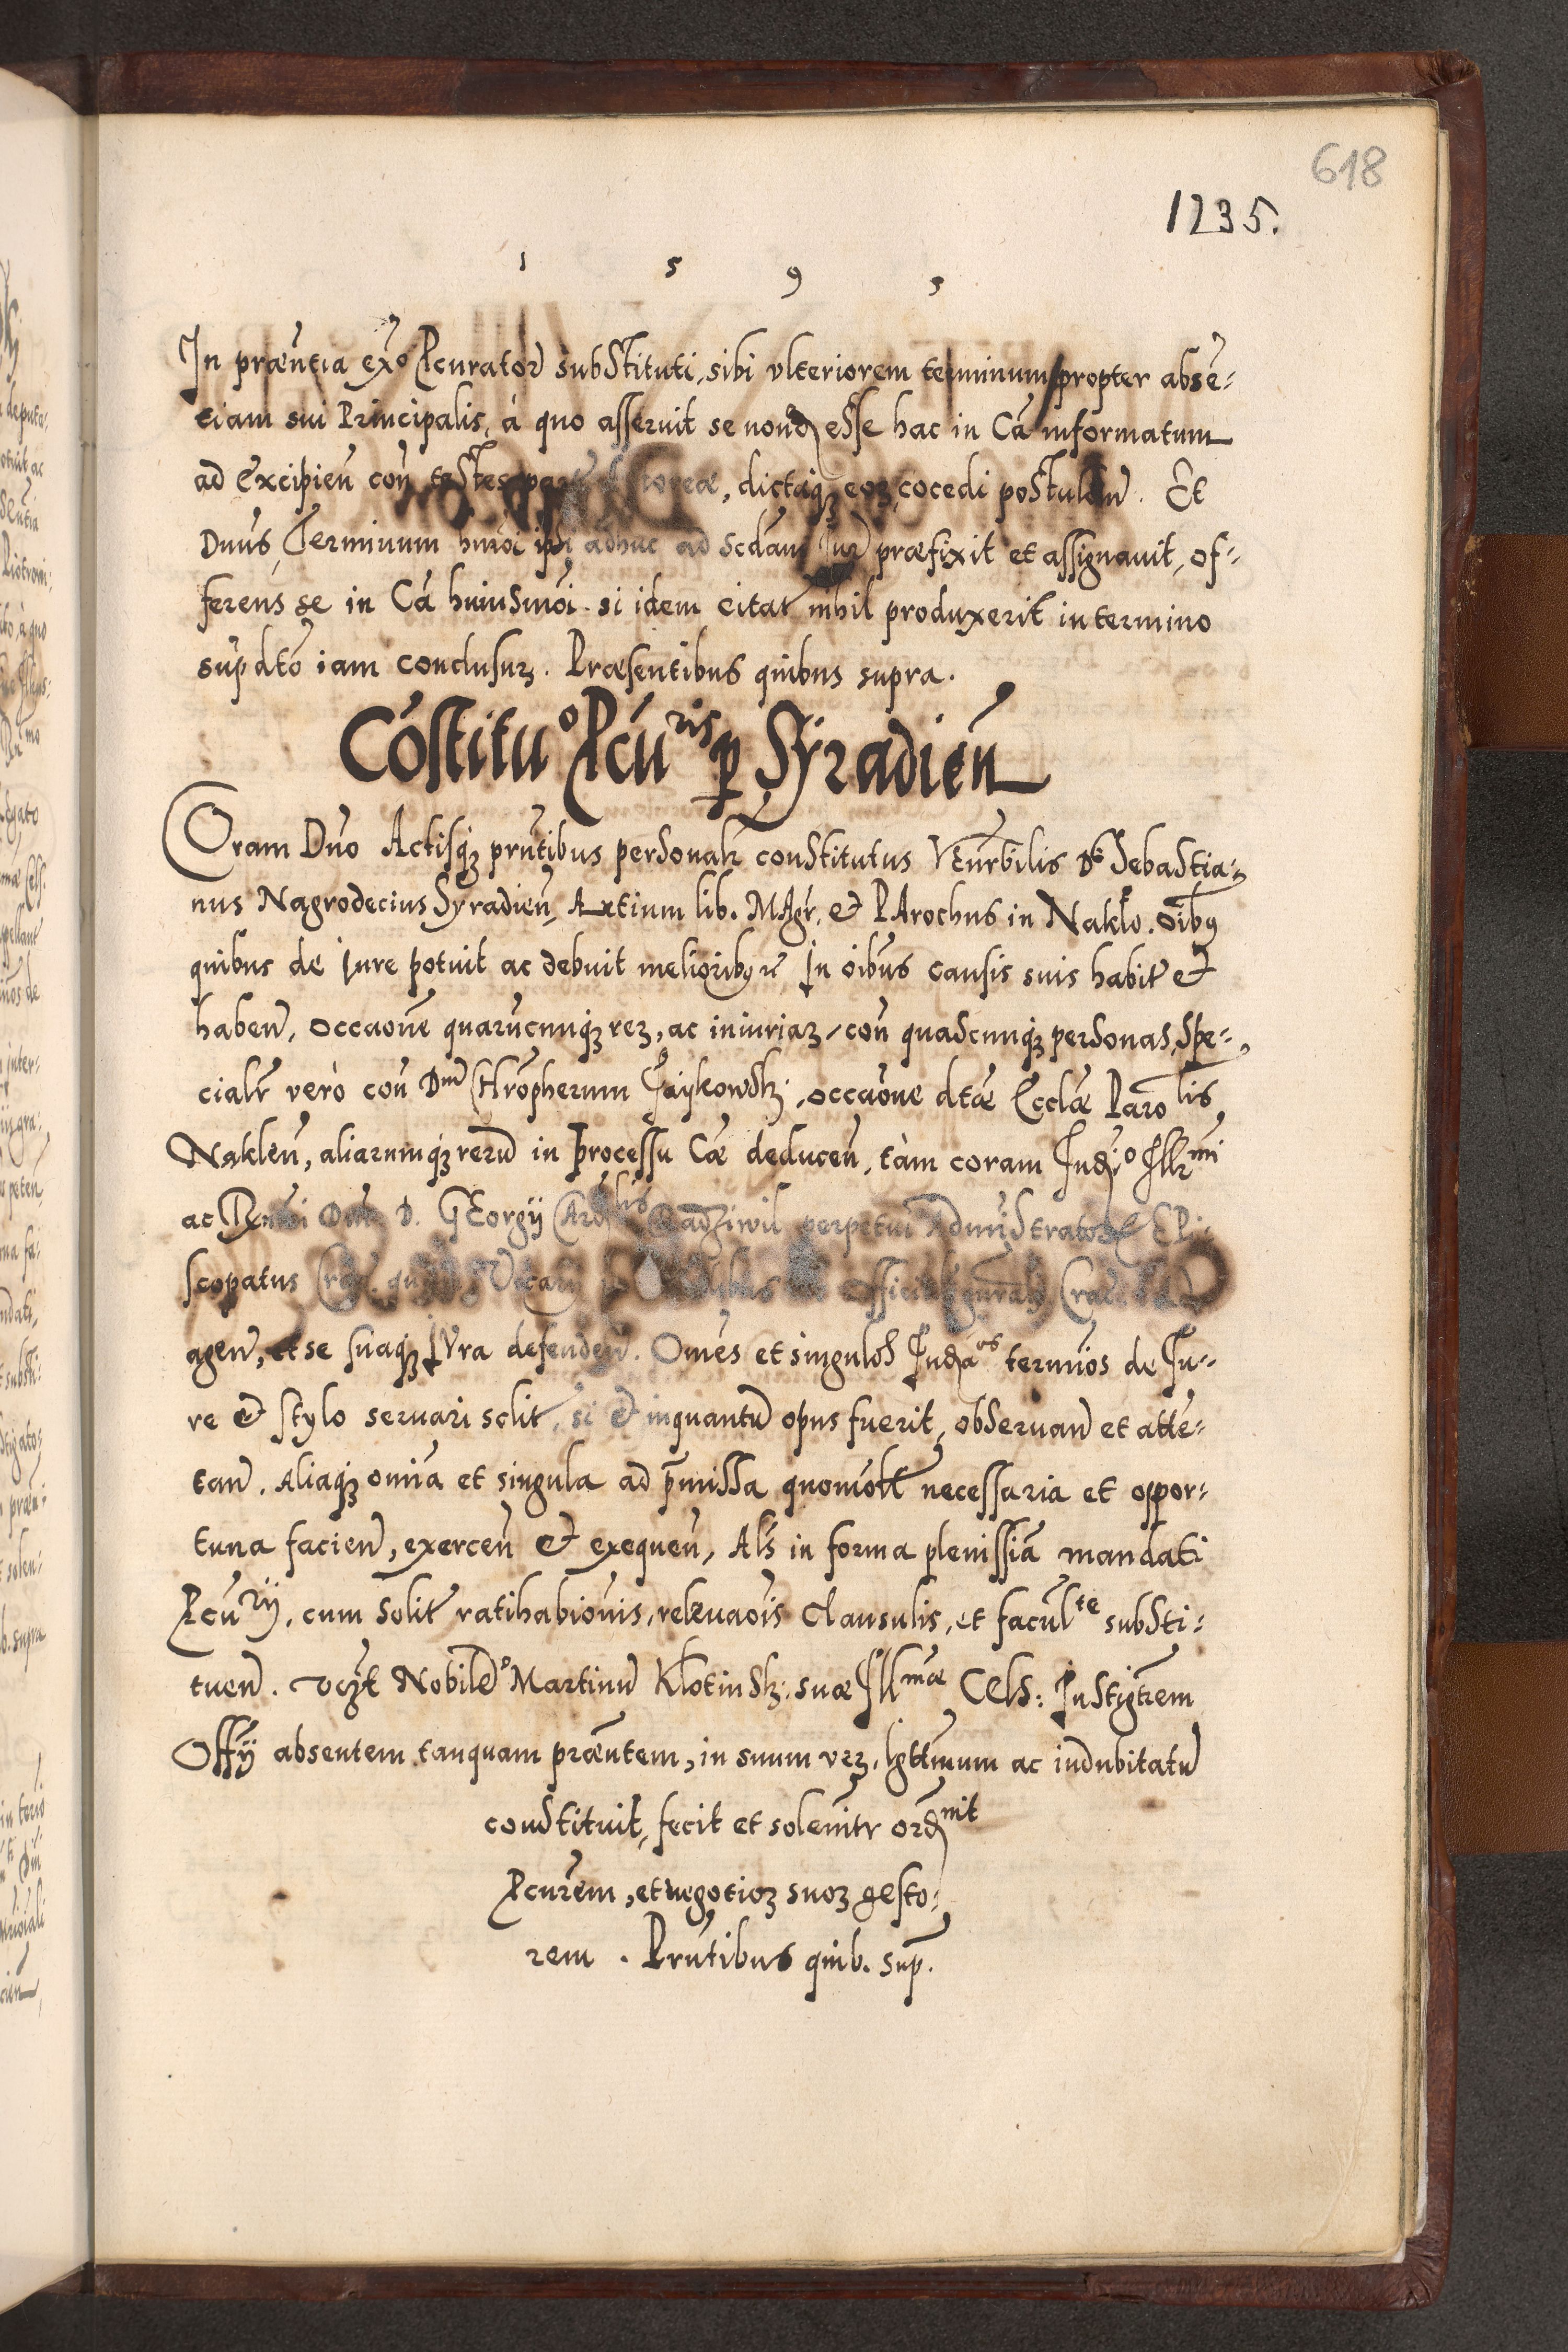 618
1235.
1 5 9 3
In præñtia exõ Pcurator substituti, sibi vlteriorem terminum propter absẽ-
tiam sui Principalis, à quo asseruit se nond esse hac in Cã informatum
ad excipieñ coñ testes, dictaq; eoz cõcedi postulañ. Et
Dnus Terminum hmõi ipsi adhuc ad Scdam Jur præfixit et assignauit, of-
ferens se in Cã huiusmõi. si idem citat nihil produxerit in termino
supdto iam conclusuz. Præsentibus quibus supra.
Cõstitu⁰ Pcuris p Syradieñ
Coram Dño Actisq; prñtibus personalr constitutus VEnrbilis Ds Sebastia-
nus Nagrodecius Syradieñ, Artium lib. MAgr. et PArochus in Naklo. oibq
quibus de iure potuit ac debuit melioribq In oibus causis suis habit et
habeñ, occaone quarucunq; rez, ac iniuriaz, coñ quascunq; personas, Spe-
cialr verò coñ Dnu CHropherum Gaykowsky, occaone dtæ Ecclæ Parolis
Nakleñ, aliarumq; rerũ in processu Cæ deduceñ, tàm coram Judio Illrmi
ac Rñdmi Dni D. GEorgij CArdlis Radziwil perpetui Admistratoris EPi-
scopatus Crac. Official gñralj Crac.
ageñ, et se suaq; iura defendeñ. Omes et singulos Judaos terminos de Ju-
re et stylo seruari solit, si et inquantũ opus fuerit, obseruañ et attẽ-
tañ. Aliaq; omia et singula ad pmissa quomolt necessaria et oppor-
tuna facieñ, exerceñ et exequeñ, Als in forma plenissiã mandati
Pcurij, cum Solit ratihabiõnis, releuaõis Clausulis, et facultte substi-
tueñ. vzt Nobilẽ Martinũ Klotinsky, suæ Illmæ Cels: Instigtrem
Offij absentem tanquam præñtem, in suum vez, lgttimum ac indubitatũ
constituit, fecit et solenitr ordnit
Pcurẽm, et negotioz suoz gesto-
rem. Prñtibus quib. sup.